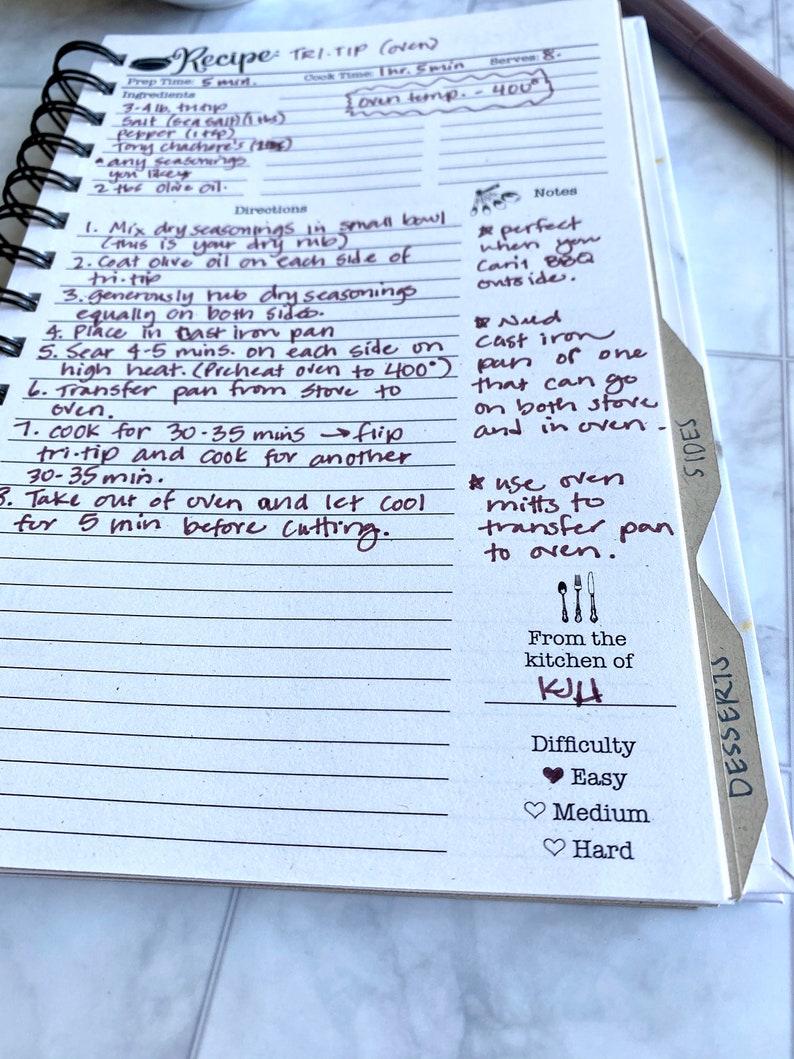 Recipe: TRI.TIP (oven)
Prep Time: 5 min. Cook Time: 1 hr. 5 min Serves: 8.
Ingredients
oven temp. - 400°
3-4 lb. tri tip
Salt (sea salt) (1 tbs)
pepper (1 tsp)
Tony Chachere's
* any seasonings
you likey
2 tbs olive oil.
Directions
1. Mix dry seasonings in small bowl
(this is your dry rub)
2. Coat olive oil on each side of
tri.tip
3. Generously rub dry seasonings
equally on both sides.
4. Place in cast iron pan
5. Sear 4-5 mins. on each side on
high heat. (Preheat oven to 400°)
6. Transfer pan from stove to
oven.
7. COOK for 30-35 mins → flip
tri.tip and cook for another
30-35 min.
8. Take out of oven and let cool
for 5 min before cutting.
Notes
* perfect
when you
can't BBQ
outside.
* Need
cast iron
pan or one
that can go
on both stove
and in oven -
* use oven
mitts to
transfer pan
to oven.
From the
kitchen of
KJH
Difficulty
Easy
Medium
Hard
SIDES
DESSERTS